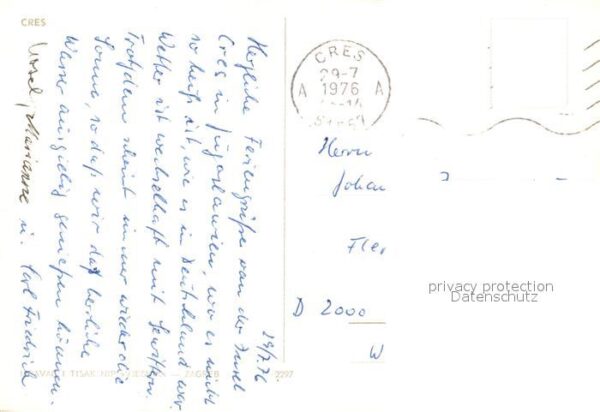 CRES
29/7.76
Herzliche Feriengrüße von der Insel
Cres in Jugoslawien, wo es nicht
so heiß ist, wie es in Deutschland war.
Wetter ist wechselhaft mit Gewittern.
Trotzdem scheint immer wieder die
Sonne, so daß wir das herrliche
Wasser ausgiebig genießen können.
Marianne u. Karl Friedrich
CRES
29-7
A 1976 A
Herrn
Johan
D 2000
W
privacy protection
Datenschutz
ZAGREB
2297